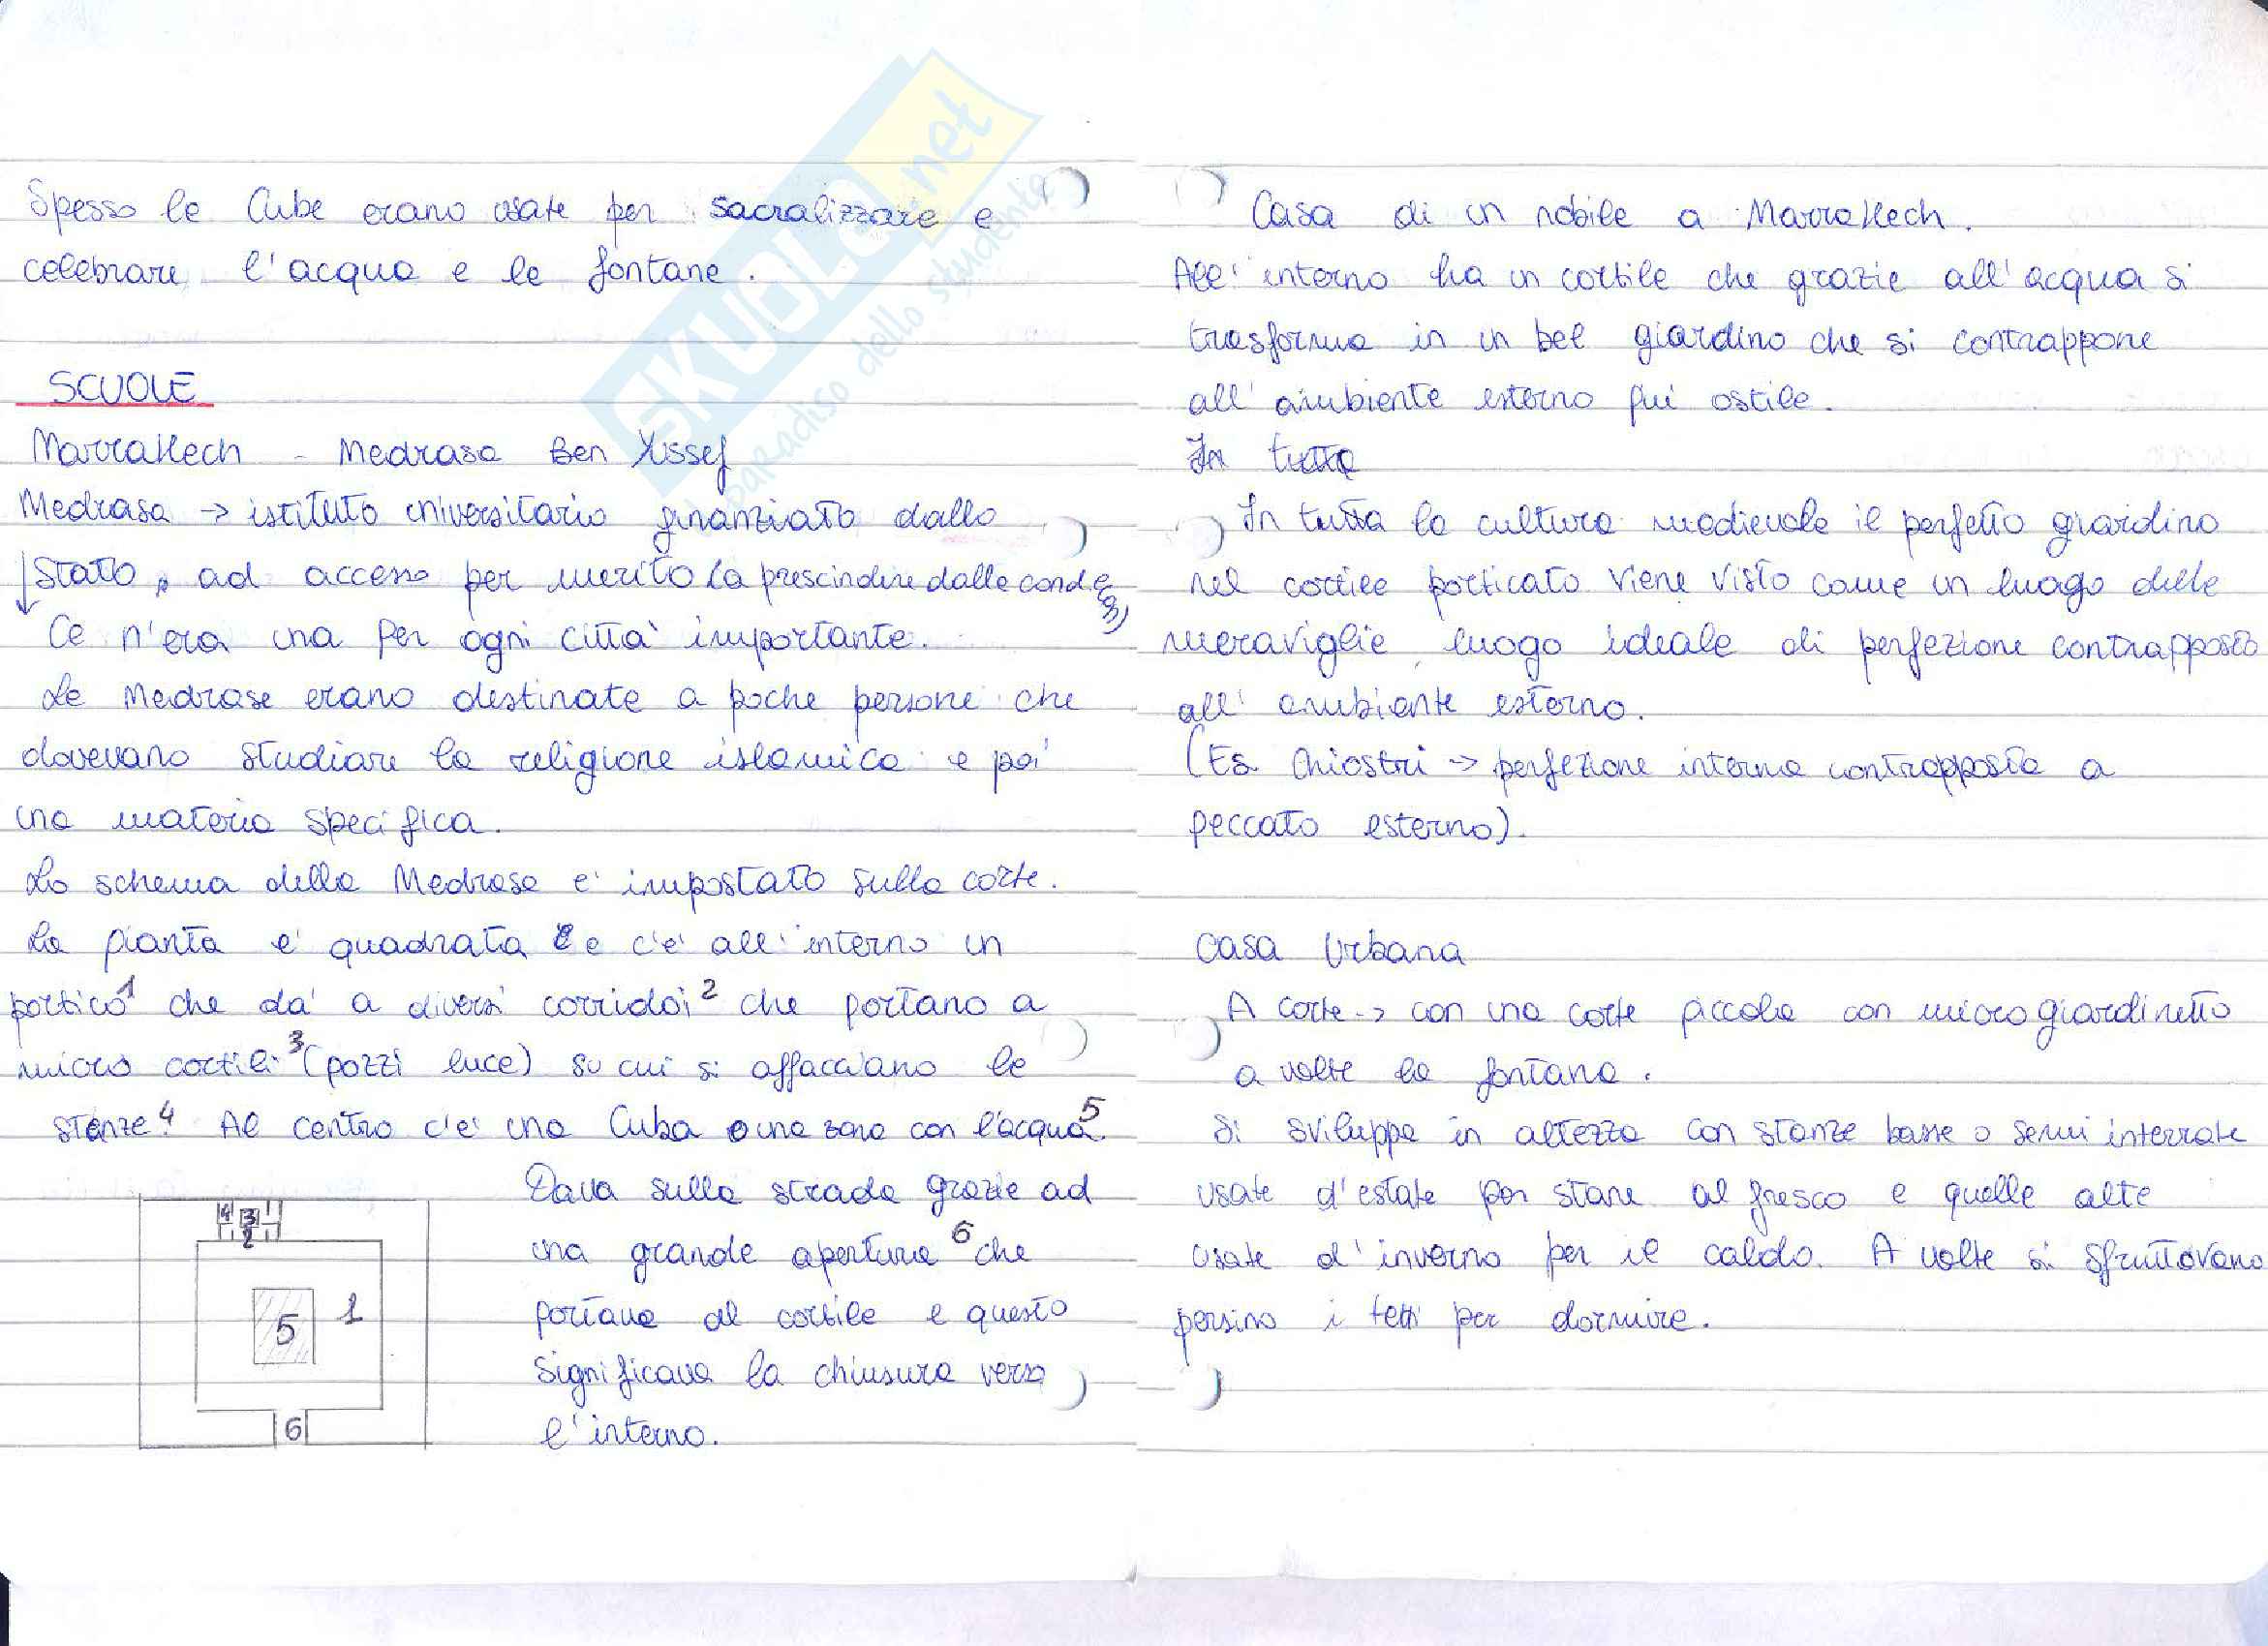 Spesso le Cube erano usate per sacralizzare e
celebrare l'acqua e le fontane.
SCUOLE
Marrakech - Medrasa Ben Yussef
Medrasa → istituto universitario finanziato dallo
↓ stato, ad accesso per merito (a prescindere dalle cond.
Ce n'era una per ogni città importante.
Le Medrase erano destinate a poche persone che
dovevano studiare la religione islamica e poi
una materia specifica.
Lo schema della Medrasa è impostato sulla corte.
La pianta è quadrata e c'è all'interno un
portico 1 che dà a diversi corridoi 2 che portano a
micro cortili 3 (pozzi luce) su cui si affacciano le
stanze 4. Al centro c'è una Cuba o una zona con l'acqua 5.
Dava sulla strada grazie ad
una grande apertura 6 che
portava al cortile e questo
significava la chiusura verso
l'interno.
4 3
2
5 1
6
Casa di un nobile a Marrakech.
All'interno ha un cortile che grazie all'acqua si
trasforma in un bel giardino che si contrappone
all'ambiente esterno più ostile.
In tutta
In tutta la cultura medievale il perfetto giardino
nel cortile porticato viene visto come un luogo delle
meraviglie, luogo ideale di perfezione contrapposto
all'ambiente esterno.
(Es. Chiostri → perfezione interna contrapposta a
peccato esterno).
Casa Urbana
A corte → con una corte piccola con micro giardinetto
a volte la fontana.
Si sviluppa in altezza con stanze basse o semi interrate
usate d'estate per stare al fresco e quelle alte
usate d'inverno per il caldo. A volte si sfruttavano
persino i tetti per dormire.
SKUOLA.net
il paradiso dello studente